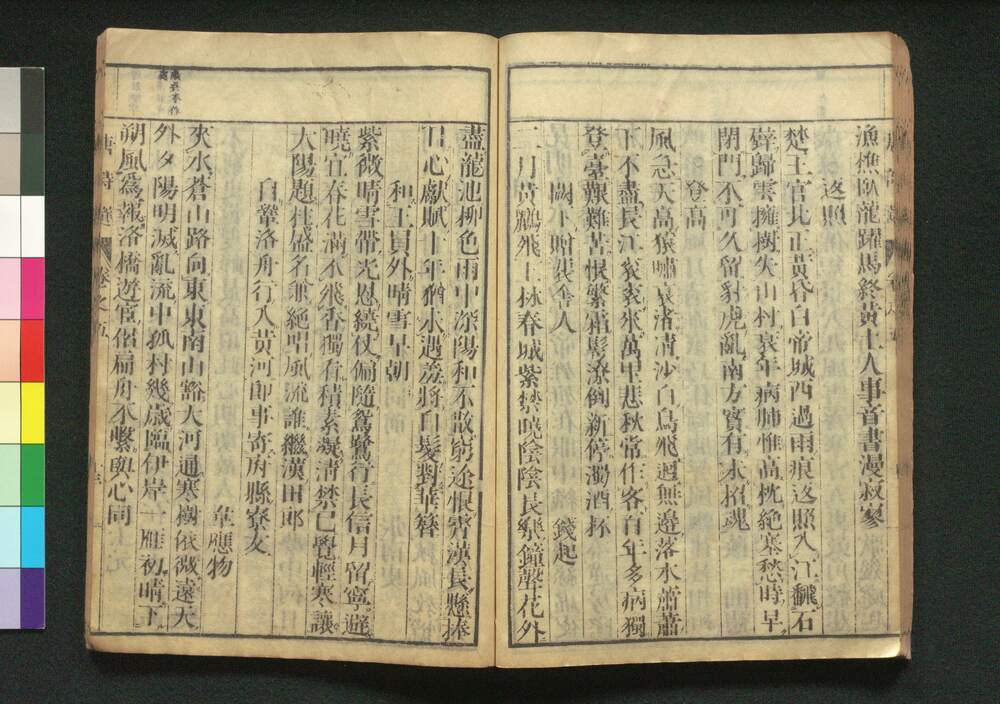 漁樵臥龍躍馬終黃土人事音書漫寂寥
返照
楚王宮北正黃昏白帝城西過雨痕返照入江飜石
壁歸雲擁樹失山村衰年病肺惟高枕絶塞愁時早
閉門不可久留豺虎亂南方實有未招魂
登高
風急天高猿嘯哀渚清沙白鳥飛迴無邉落木蕭蕭
下不盡長江袞袞來萬里悲秋常作客百年多病獨
登臺艱難苦恨繁霜鬂潦倒新停濁酒杯
闕下贈裴舍人
錢起
二月黃鸝飛上林春城紫禁曉陰陰長樂鐘聲花外
盡龍池柳色雨中深陽和不散窮途恨霄漢長懸捧
日心獻賦十年猶未遇羞將白髮對華簪
和王員外晴雪早朝
紫微晴雪帶光恩繞仗偏隨鴛鷺行長信月留寧避
曉宜春花滿不飛香獨看積素凝清禁已覺輕寒讓
太陽題柱盛名兼絶唱風流誰繼漢田郎
自鞏洛舟行入黃河即事寄府縣寮友
韋應物
夾水蒼山路向東東南山豁大河通寒樹依微遠天
外夕陽明滅亂流中孤村幾歲臨伊岸一雁初晴下
朔風爲報洛橋遊宦侶扁舟不繫與心同
唐詩選
卷之五